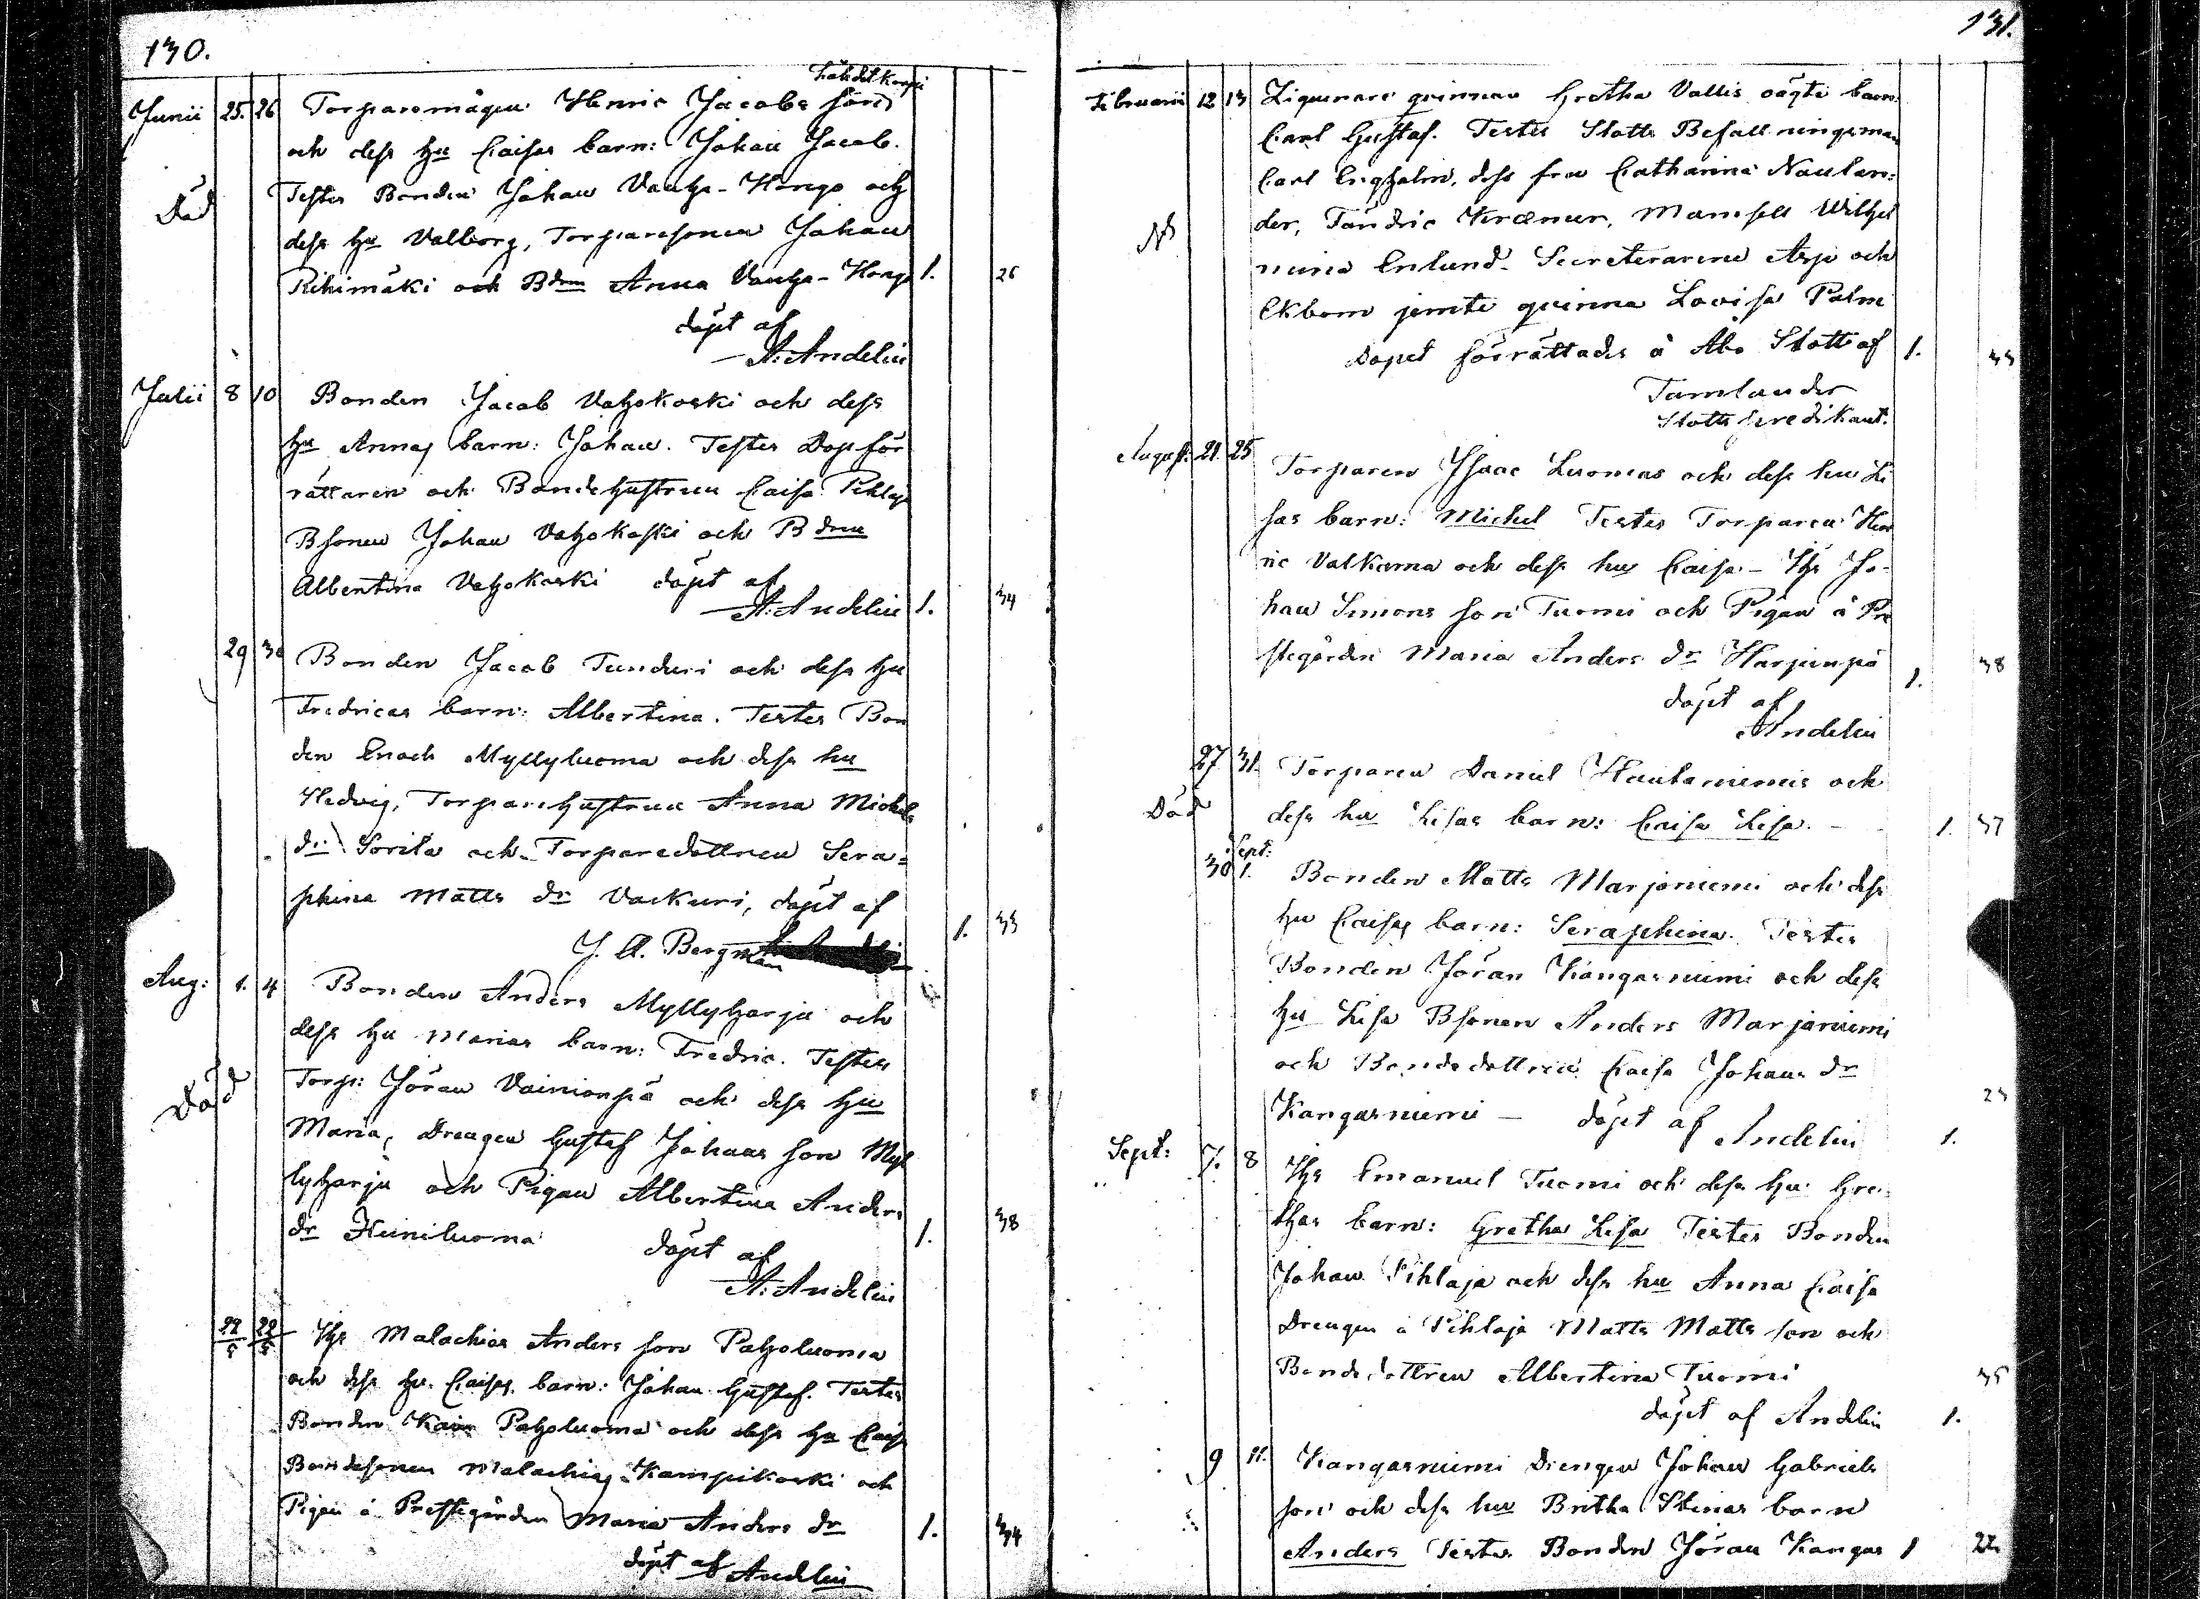 130.
Junii 25. 26 Torparemågen Henric Jacobs son
och dess hu Caisas barn: Johan Jacob.
Testes Bonden Johan Vanha-Hongo och
Död
dess hu Valborg, Torparesonen Johan
Rihimäki och Bdrn Anna Vanha-Hongo 1. 26
döpt af
A. Andelin
Julii 8 10 Bonden Jacob Vatzokoski och dess
hu Annas barn: Johan. Testes Dopför
rättaren och Bondehustrun Caisa Pihlaja
Bsonen Johan Vatzokoski och Bdrn
Albertina Vatzokoski döpt af
A. Andelin 1. 34
29 30 Bonden Jacob Tunduri och dess hu
Fredricas barn: Albertina. Testes Bon
den Enoch Myllyluoma och dess hu
Hedvig, Torparehustrun Anna Michels
dr Sorila och Torparedottren Sera=
phina Matts dr Vackuri, döpt af
J. A. Bergman 1. 33
Aug: 1. 4 Bonden Anders Myllyharju och
dess hu Marias barn: Fredric. Testes
Torp: Jöran Vainionpä och dess hu
Död
Maria, Drengen Gustaf Johans son Myl
lyharju och Pigan Albertina Anders
dr Heiniluoma 1. 38
döpt af
A. Andelin
22/8 29/8 Hys Malachias Anders son Patzoluoma
och dess hu Caisas barn: Johan Gustaf. Testes
Bonden Patzoluoma och dess hu Caisa
Bondesonen Malachias Kampikoski och
Pigan å Prestegården Maria Anders dr 1. 34
döpt af Andelin
131.
Februarii 12 13 Ziguenare qvinnan Gretha Vallis oägte barn:
Carl Gustaf. Testes Slotts Befallningsman
Carl Engholm, dess fru Catharina Naulan=
der, Fändric Kræmer, Mamsell Wilhel
mina Enlund. Secreterarene Asp och
Ekbom jemte qvinna Lovisa Palm
Dopet förrättades å Åbo Slott af 1. 33
Tamlander
Slotts predikant.
August: 21. 25 Torparen Isaac Luomas och dess hu Li
sas barn: Michel Testes Torparen Hen
ric Valkama och dess hu Caisa - Hys Jo-
han Simons son Tuomi och Pigan å Pre
stegården Maria Anders dr Harjunpä 1. 38
döpt af
Andelin
27 31. Torparen Daniel Hautaniemis och
Död
dess hu Lisas barn: Caisa Lisa. - 1. 37
Sept:
30 1. Bonden Matts Marjaniemi och dess
hu Caisas barn: Seraphina. Testes
Bonden Jöran Kangasniemi och dess
hu Lisa Bsonen Anders Marjaniemi
och Bondedottren Caisa Johans dr
Kangasniemi - döpt af Andelin 1. 23
Sept: 7. 8 Hys Emanuel Tuomi och dess hu Gre
thas barn: Gretha Lisa Testes Bonden
Johan Pihlaja och dess hu Anna Caisa
Drengen å Pihlaja Matts Matts son och
Bondedottren Albertina Tuomi 35
döpt af Andelin 1.
9 11. Kangasniemi Drengen Johan Gabriels
son och dess hu Britha Stinas barn
Anders Testes Bonden Jöran Kangas 1 22